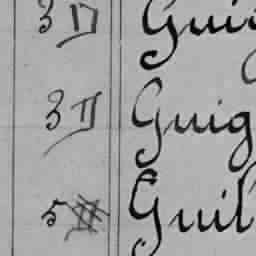 3 D Gui
3 D Guig
5 Guil